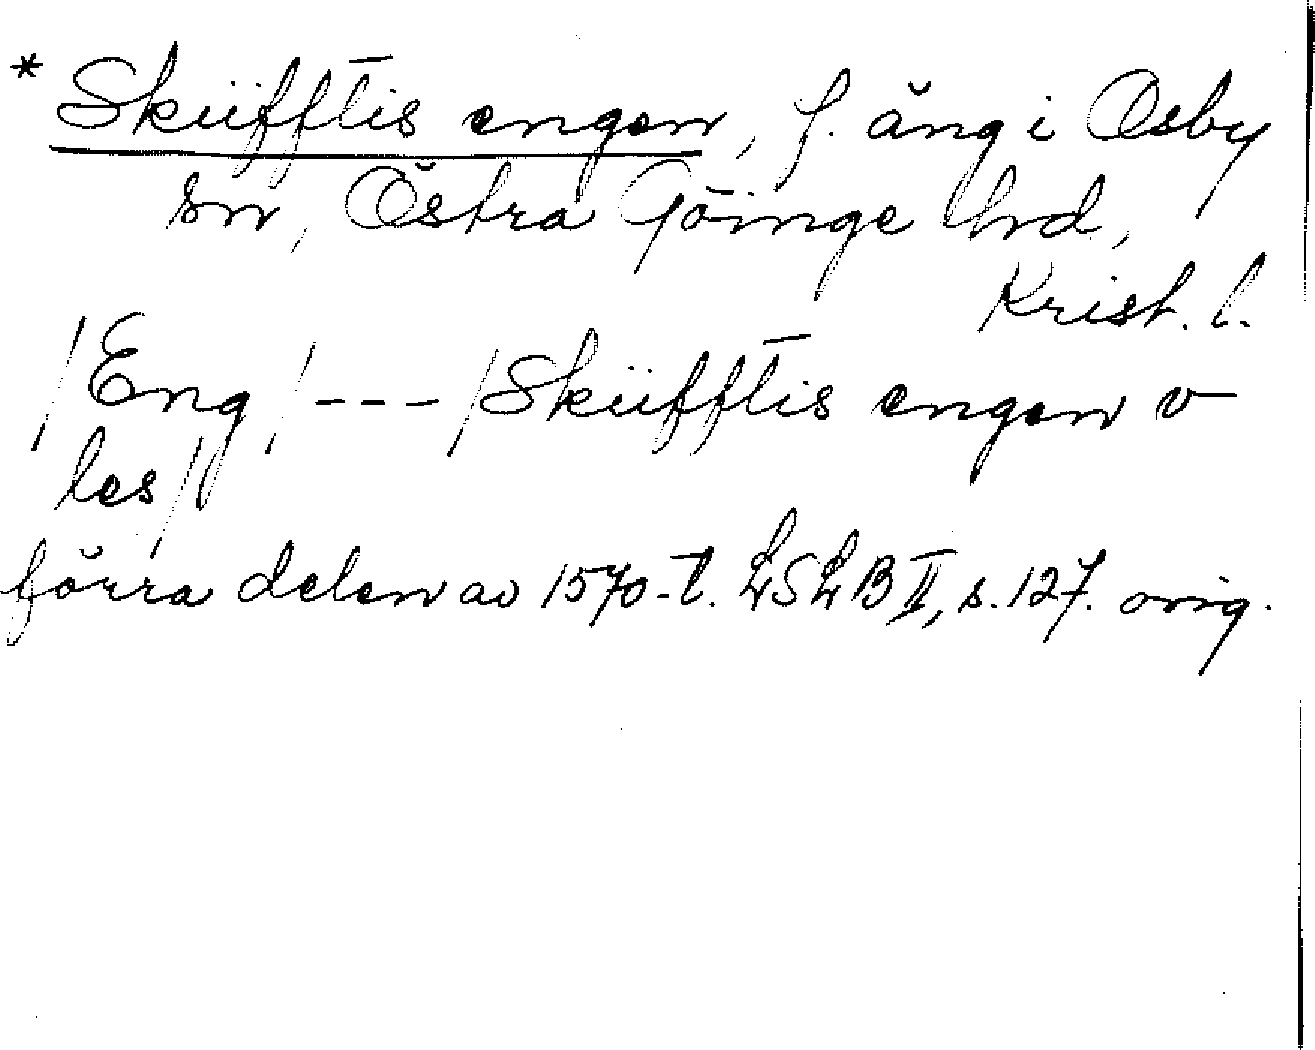 * Sküfftis engen, f. äng i Osby
sn, Östra Göinge hrd,
Krist. l.
/Eng/ --- /Sküfftis engen v
les/
förra delen av 1570-t. LSLB II, s. 127. orig.